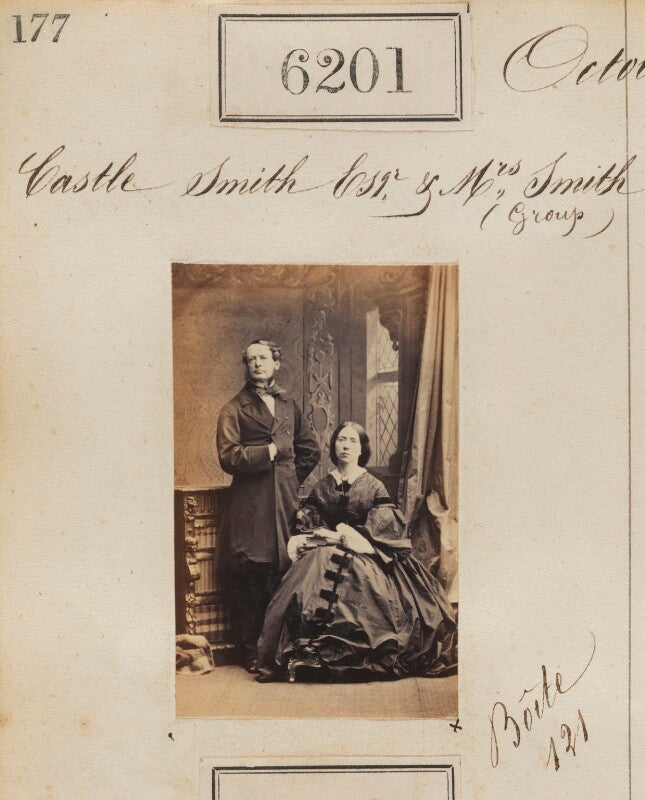 177
6201
Castle Smith Esqr. & Mrs Smith
(Group)
Bôite
121